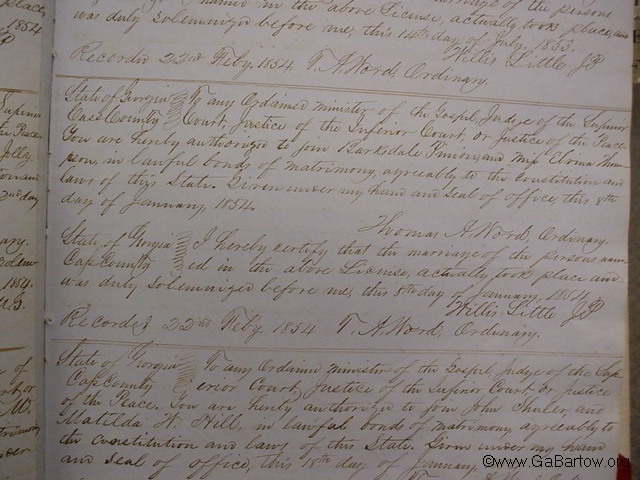 named in the above License, actually took place, and
was duly solemnized before me, this 14th day of July, 1853.
Willis Little JP
Recorded 22nd Feby. 1854. T. A. Word, Ordinary.
State of Georgia To any Ordained minister of the Gospel, Judge of the Superior
Cass County Court, Justice of the Inferior Court or Justice of the Peace
You are hereby authorized to join Barksdale and Miss
son, in lawful bonds of matrimony, agreeably to the constitution and
laws of this State. Given under my hand and seal of office, this 8th
day of January, 1854.
Thomas A. Word, Ordinary.
State of Georgia I hereby certify that the marriage of the persons nam-
Cass County ed in the above License, actually took place and
was duly solemnized before me, this 8th day of January, 1854.
Willis Little JP
Recorded 22nd Feby. 1854 T. A. Word, Ordinary.
State of Georgia To any Ordained minister of the Gospel judge of the Sup-
Cass County erior Court, Justice of the Inferior Court, or Justice
of the Peace. You are hereby authorized to join John and
Matilda H. Hill, in lawful bonds of matrimony agreeably to
the constitution and laws of this State. Given under my hand
and seal of office, this 18th day of January,
©www.GaBartow.org